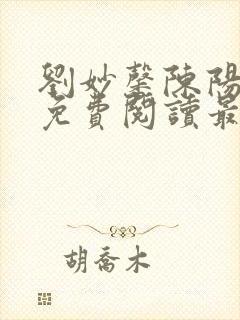 劉妙馨陳陽
免費閱讀最
胡喬木